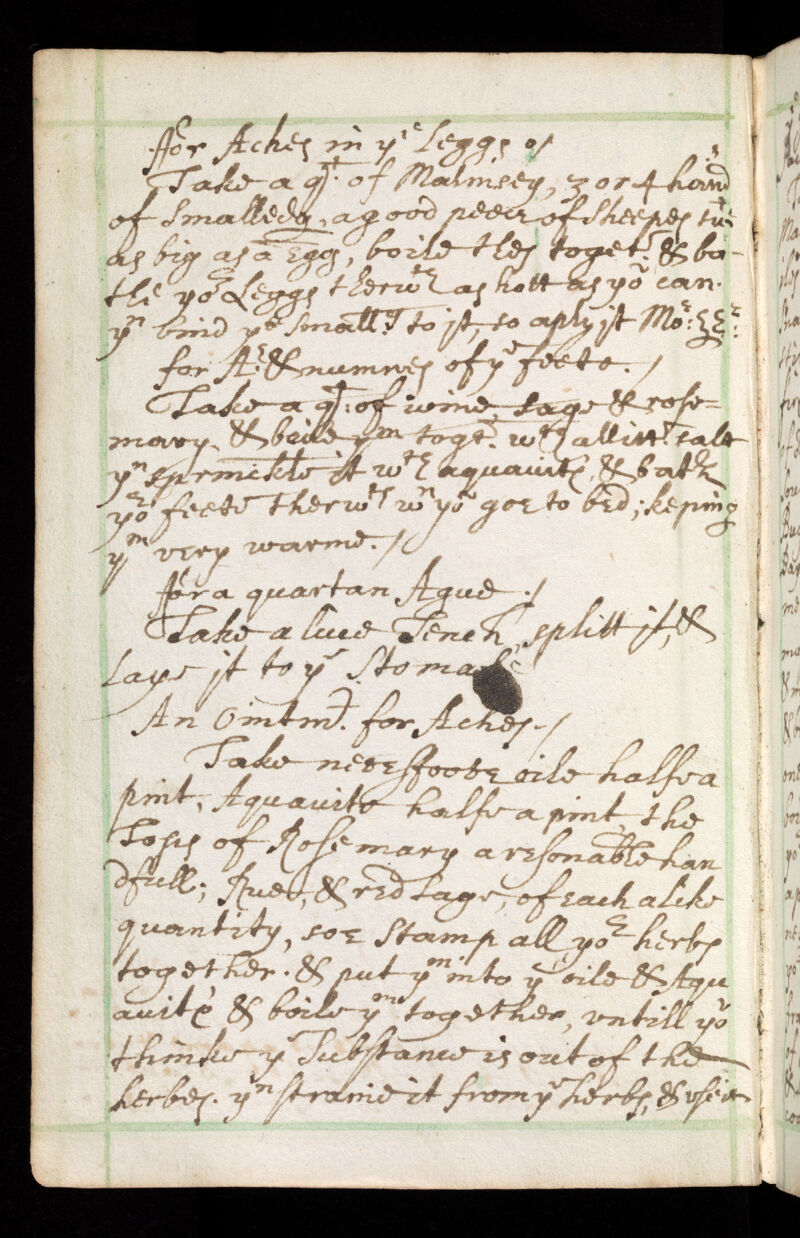 ffor Aches in yᵉ Leggs
Take a qᵗ: of Malmsey, 3 or 4 hand
of Smalledg, a good peece of Sheepes sue
as big as a Egg, boile thes toget: & ba-
the yoʳ Leggs therwᵗʰ as hott as yoᵘ can.
yⁿ bind yᵉ Small:g to jt, so aply jt Moʳ:
for A: & numnes of yᵉ feete.
Take a qᵗ: of wine, sage & rose=
mary, & boile yᵐ togeʳ. wᵗʰ a litt: salt
yⁿ sprinckle it wᵗʰ aquavite, & bath
yoʳ feete therwᵗʰ wⁿ yoᵘ goe to bed; keping
yᵐ very warme.
ffor a quartan Ague.
Take a live Tench, splitt jt, &
Laye jt to yᵉ Stomake
An Ointmᵈ. for Aches.
Take neetesfoote oile halfe a
pint, Aquavite halfe a pint, the
Tops of Rosemary a resonable han
dfull; Rue, & red Sage, of each a like
quantity, soe Stamp all yoʳ herbs
together. & put yᵐ into yᵉ oile & Aqu
avite & boile yᵐ together, vntill yoᵘ
thinke yᵉ Substance is out of the
herbes. yⁿ straine it from yᵉ herbs, & vse it